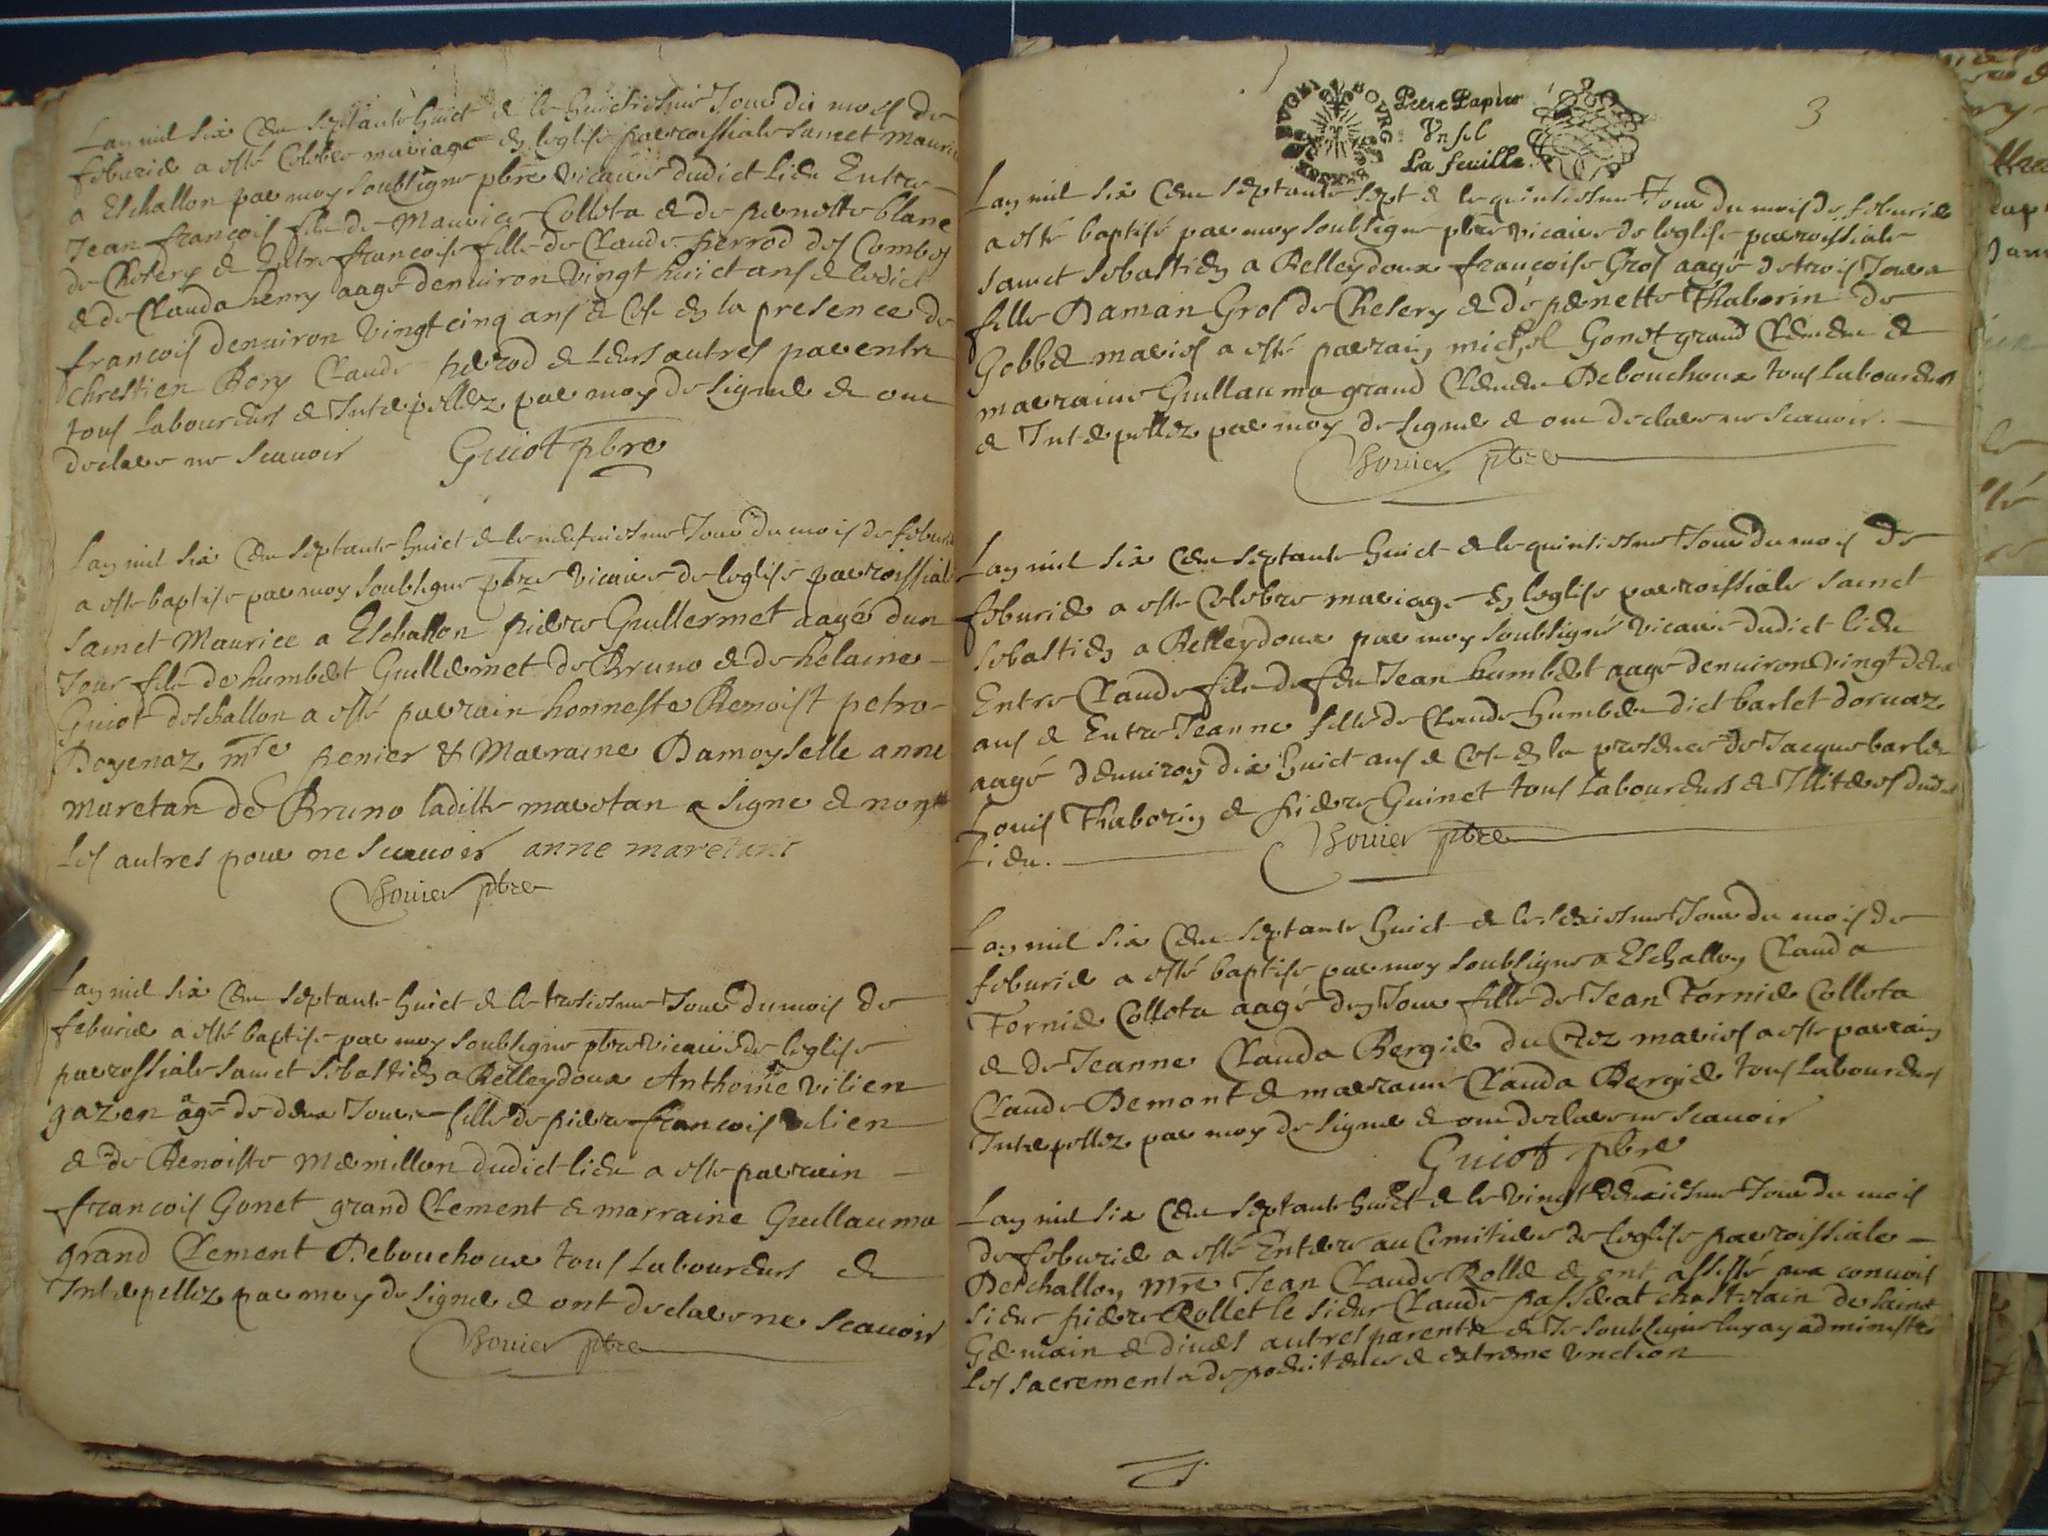 Lan mil six Cen septante huict & le huictiesme Jour du mois de
feburier a esté Celebre mariage En leglise parrossiale sainct Mauric
a Eschallon par moy soubsigne pbre vicaire dudict Lieu Entre
Jean francois fils de Maurice Colleta & de pernette blanc
de Chesery & Entre francoise fille de Claude perrod des Combes
& de Clauda henry aagé denuiron vingt huict ans & ledict
francois denuiron vingt cinq ans & Ce En la presence de
chrestien Bory Claude perrod & Leurs autres parentz
tous Laboureurs & Interpellez par moy de signer & ont
declare ne scauoir Guiot pbre
Lan mil six Cen septante huict & le neufuiesme Jour du mois de feburie
a este baptise par moy soubsigne pbre vicaire de leglise parroissial
sainct Maurice a Eschallon pierre Guillermet aagé dun
Jour fils de humbert Guillermet de Bruno & de helaine
Guiot deschallon a esté parrain honneste Benoist petro
Boyenaz mre penier & Marraine Damoyselle anne
maretan de Bruno ladille maretan a signe & non
Les autres pour ne scauoir anne maretant
Bouuier pbre
Lan mil six Cen septante huict & le tresiesme Jour du mois de
feburier a esté baptise par moy soubsigne pbre vicaire de leglise
parrossiale sainct sebastien a Belleydoux Anthoine vilien
gazen âgé de deux Jours fille de pierre francois vilien
& de Benoiste mermillon dudict lieu a este parrain
francois Gonet grand Clement & marraine Guillauma
grand Clement Debouchoux tous Laboureurs &
Interpellez par moy de signer & ont declare ne scauoir
Bouuier pbre
3
BOURG
Petit Papier
Vn sol
La feuille
Lan mil six Cen septante sept & le quinsiesme Jour du mois de feburier
a esté baptisé par moy soubsigne pbre vicaire de leglise parrossiale
sainct sebastien a Belleydoux francoise Gros aagé de trois Jours
fille Daman Gros de Chesery & de pernette Thaborin de
Gobbet maries a esté parrain michel Gonet grand Clement &
marraine Guillauma grand Clement Debouchoux tous Laboureurs
& Interpellez par moy de signer & ont declare ne scauoir.
Bouuier pbre
Lan mil six Cen septante huict & le quinsiesme Jour du mois de
feburier a este Celebre mariage En leglise parroissiale sainct
sebastien a Belleydoux par moy soubsigné vicaire dudict lieu
Entre Claude fils de feu Jean humbert aagé denuiron vingt deux
ans & Entre Jeanne fille de Claude humbert dict barlet doruaz
aagé denuiron dix huict ans & Ce En la presence de Jacque barlet
Louis Thaborin & pierre Guinet tous Laboureurs & Illiteres dudict
Lieu.
Bouuier pbre
Lan mil six Cen septante huict & le seziesme Jour du mois de
feburier a esté baptise par moy soubsigne a Eschallon Clauda
Tornier Colleta aagé dun Jour fille de Jean Tornier Colleta
& de Jeanne Clauda Bergier du Crez maries a este parrain
Claude Demont & marraine Clauda Bergier tous Laboureurs
Interpellez par moy de signer & ont declare ne scauoir
Guiot pbre
Lan mil six Cen septante huict & le vingt deuxiesme Jour du mois
de feburier a esté Enterre au Cemitiere de leglise parroissiale
Deschallon mre Jean Claude Rollet & ont assisté aux conuois
sieur pierre Rollet le sieur Claude passerat chastelain de sainct
Germain & diuers autres parentz & Je soubsigne luy ay administré
Les sacrements de penitence & extreme vnction